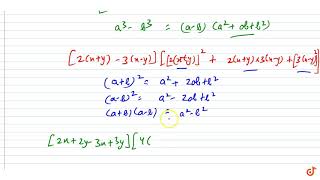 a³ - b³ = (a-b) (a² + ab + b²)
[2(x+y) - 3(x-y)] [[2(x+y)]² + 2(x+y)×3(x-y) + [3(x-y)]²]
(a+b)² = a² + 2ab + b²
(a-b)² = a² - 2ab + b²
(a+b)(a-b) = a² - b²
[2x + 2y - 3x + 3y] [4(